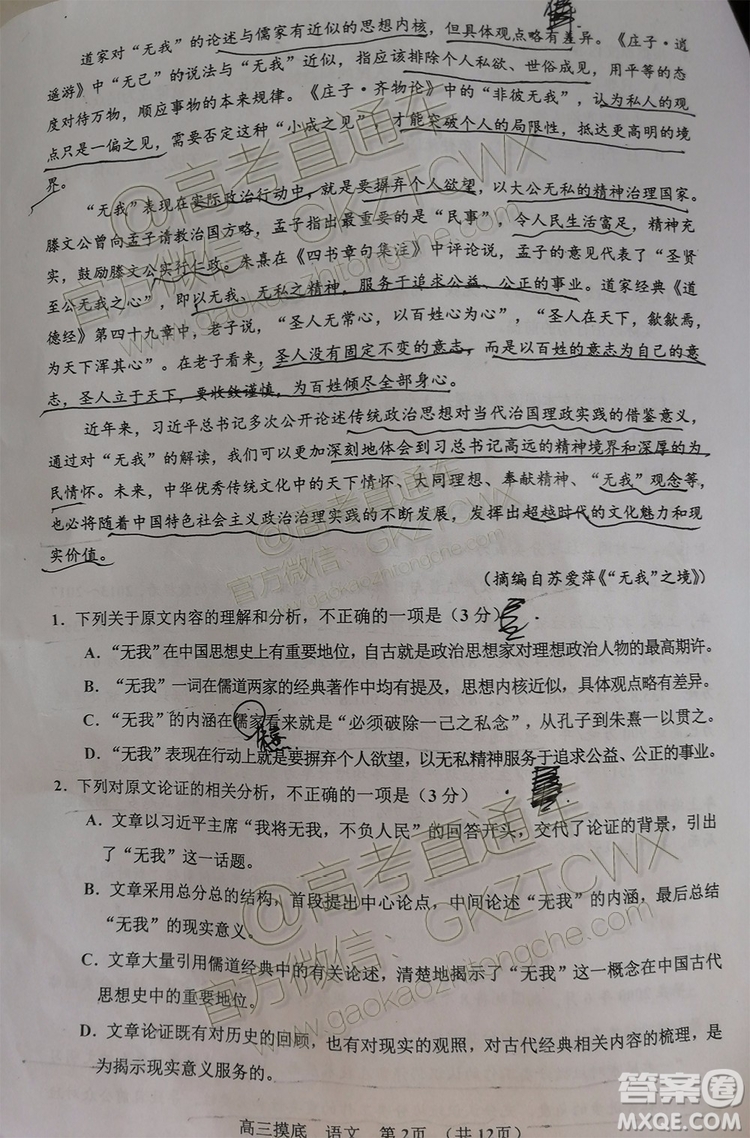 道家对“无我”的论述与儒家有近似的思想内核，但具体观点略有差异。《庄子·逍
遥游》中“无己”的说法与“无我”近似，指应该排除个人私欲、世俗成见，用平等的态
度对待万物，顺应事物的本来规律。《庄子·齐物论》中的“非彼无我”，认为私人的观
点只是一偏之见，需要否定这种“小成之见”，才能突破个人的局限性，抵达更高明的境
界。
“无我”表现在实际政治行动中，就是要摒弃个人欲望，以大公无私的精神治理国家。
滕文公曾向孟子请教治国方略，孟子指出最重要的是“民事”，令人民生活富足，精神充
实，鼓励滕文公实行仁政。朱熹在《四书章句集注》中评论说，孟子的意见代表了“圣贤
至公无我之心”，即以无我、无私之精神，服务于追求公益、公正的事业。道家经典《道
德经》第四十九章中，老子说，“圣人无常心，以百姓心为心”，“圣人在天下，歙歙焉，
为天下浑其心”。在老子看来，圣人没有固定不变的意志，而是以百姓的意志为自己的意
志，圣人立于天下，要收敛谨慎，为百姓倾尽全部身心。
近年来，习近平总书记多次公开论述传统政治思想对当代治国理政实践的借鉴意义，
通过对“无我”的解读，我们可以更深刻地体会到习总书记高远的精神境界和深厚的为
民情怀。未来，中华优秀传统文化中的天下情怀、大同理想、奉献精神、“无我”观念等，
也必将随着中国特色社会主义政治治理实践的不断发展，发挥出超越时代的文化魅力和现
实价值。
（摘编自苏爱萍《“无我”之境》）
1．下列关于原文内容的理解和分析，不正确的一项是（3分）
A．“无我”在中国思想史上有重要地位，自古就是政治思想家对理想政治人物的最高期许。
B．“无我”一词在儒道两家的经典著作中均有提及，思想内核近似，具体观点略有差异。
C．“无我”的内涵在儒家看来就是“必须破除一己之私念”，从孔子到朱熹一以贯之。
D．“无我”表现在行动上就是要摒弃个人欲望，以无私精神服务于追求公益、公正的事业。
2．下列对原文论证的相关分析，不正确的一项是（3分）
A．文章以习近平主席“我将无我，不负人民”的回答开头，交代了论证的背景，引出
了“无我”这一话题。
B．文章采用总分总的结构，首段提出中心论点，中间论述“无我”的内涵，最后总结
“无我”的现实意义。
C．文章大量引用儒道经典中的有关论述，清楚地揭示了“无我”这一概念在中国古代
思想史中的重要地位。
D．文章论证既有对历史的回顾，也有对现实的观照，对古代经典相关内容的梳理，是
为揭示现实意义服务的。
高三摸底 语文 第2页 （共12页）
@高考直通车
官方微信：GKZTCWX
www.gaokaozhitongche.com
@高考直通车
官方微信：GKZTCWX
www.gaokaozhitongche.com
答案圈
MXQE.COM